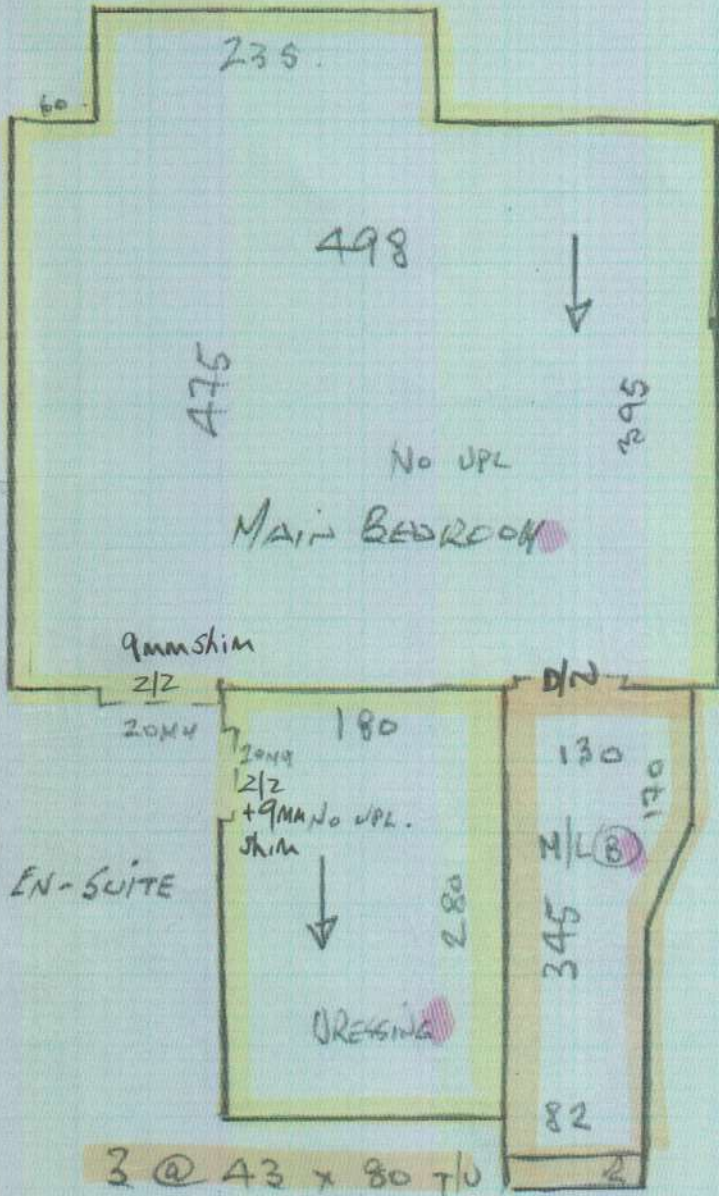 235.
60
498
475
395
No UPL
MAIN BEDROOM
9mm shim
2/2
20MM
D/N
180
20MM
2/2
+9MM No UPL.
shim
130
170
M/L B
EN-SUITE
280
345
DRESSING
82
3 @ 43 x 80 T/U
2